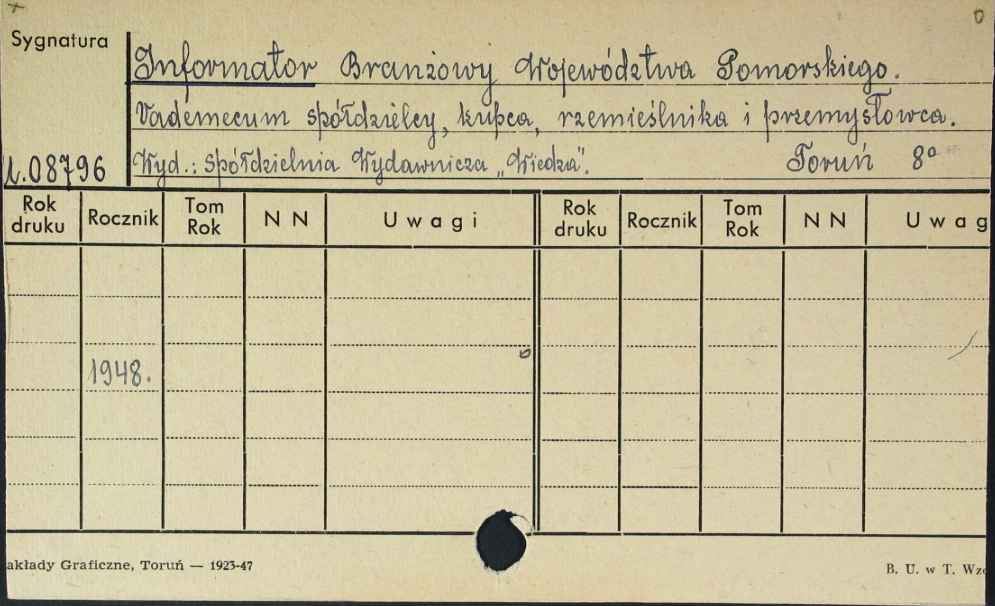 Sygnatura
Informator Branżowy Województwa Pomorskiego.
Vademecum spółdzielcy, kupca, rzemieślnika i przemysłowca.
08796
Wyd.: Spółdzielnia Wydawnicza „Wiedza”. Toruń 8°
Rok druku Rocznik Tom Rok N N Uwagi Rok druku Rocznik Tom Rok N N Uwag
1948.
akłady Graficzne, Toruń — 1923-47 B. U. w T. Wzo